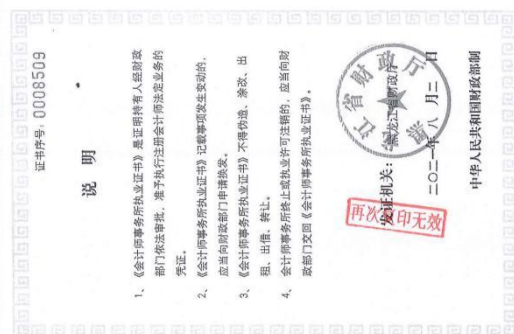 证书序号：0008509
说 明
1、《会计师事务所执业证书》是证明持有人经财政
部门依法审批，准予执行注册会计师法定业务的
凭证。
2、《会计师事务所执业证书》记载事项发生变动的，
应当向财政部门申请换发。
3、《会计师事务所执业证书》不得伪造、涂改、出
租、出借、转让。
4、会计师事务所终止或执业许可注销的，应当向财
政部门交回《会计师事务所执业证书》。
发证机关：黑龙江省财政厅
二〇二一年八月二日
中华人民共和国财政部制
再次复印无效